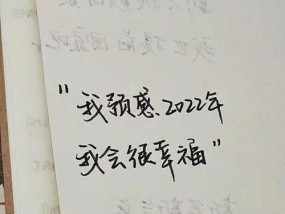 "我预感2022年
我会很幸福"